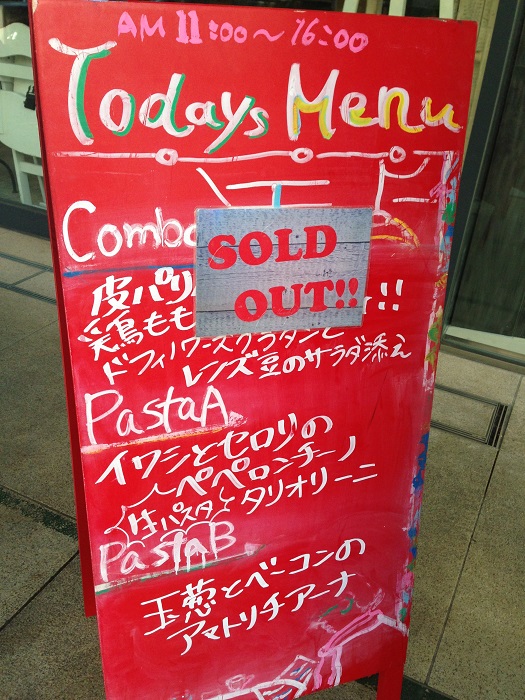 AM 11:00〜16:00
Todays Menu
Combo
SOLD
OUT!!
皮パリ !!
鶏もも
ドフィノワーズグラタンと
レンズ豆のサラダ添え
Pasta A
イワシとセロリの
ペペロンチーノ
生パスタ タリオリーニ
Pasta B
玉葱とベーコンの
アマトリチアーナ